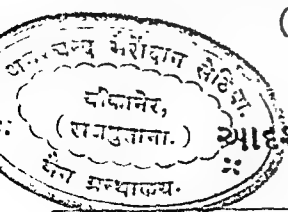 अगरचन्द भैरोंदान सेठिया.
बीकानेर,
(राजपुताना.)
જैन ग्रन्थालय.
આદ